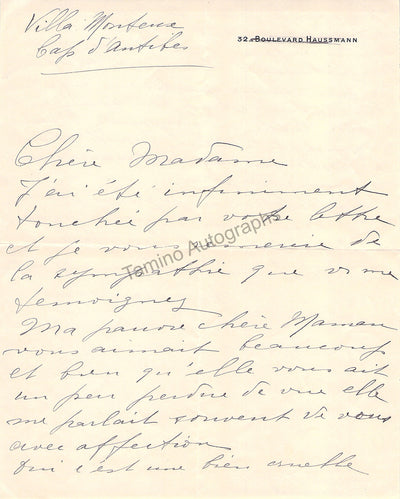 Villa Monteuse
Cap d'Antibes
32. Boulevard Haussmann
Chère Madame
J'ai été infiniment
touchée par votre lettre
et je vous remercie de
la sympathie que v. me
temoignez
Ma pauvre chère Maman
vous aimait beaucoup
et bien qu'elle vous ait
un peu perdue de vue elle
me parlait souvent de vous
avec affection
Oui c'est une bien cruelle
Tamino Autographs